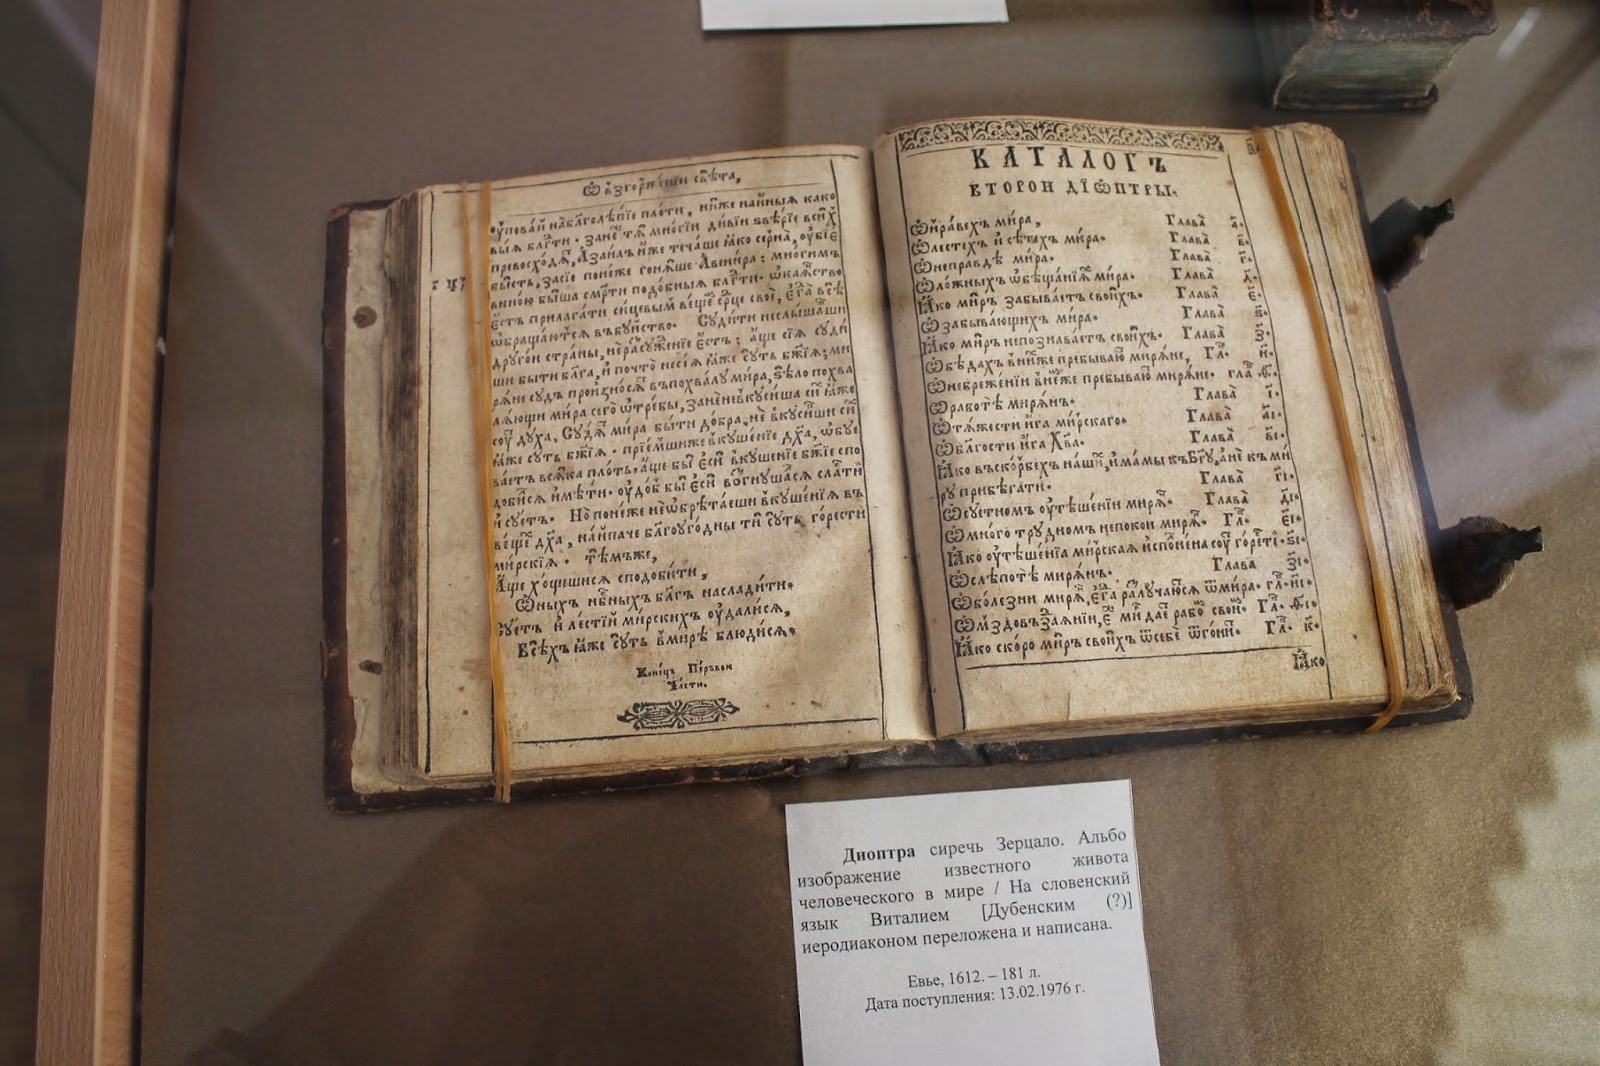 Ѡ взгорженїи свѣта,
ꙋповай на благолѣпїе плоти, ниже на иныѧ како
выѧ
превосходѧ, Азаилъ иже течаше ꙗко серна, ꙋбїе
бысть, засїе понеже гонѧше Авенира: многимъ
виною быша смрти подобныѧ блгти. ѡкаѧнство
єсть прилагати сицевымъ вещемъ срце своє, єгда всѣ
ѡбращаютсѧ въ буйство. Судити неслышавши
другои страны, неразсужденїе єсть: аще сїѧ суди
ши быти блага, и почто несїѧ ꙗже суть бжїѧ; ми
рѧне судъ произносѧт въ похвалу мира, ѕѣло похва
лѧющи мира сего ѡтребы, зане невкусиша сих ꙗже
соут духа. Судѧт мира быти добра, не вкусивши сих
ꙗже суть бжїѧ. прїемшиже вкушенїе дха, ѡбуе
ваетъ всѧка плоть. аще бы єси вкушенїе бжїе спо
добилсѧ имѣти. оудоб бы єси возгнушалсѧ сласти
и суетъ. Но понеже не ѡбрѣтаеши вкушенїѧ въ
вещех дха, наипаче благоугодны ти суть горести
мирскїѧ. тѣмъже,
Аще хощешисѧ сподобити,
Ѡныхъ нбныхъ благъ насладити.
Суетъ и лестїй мирскихъ оудалисѧ,
Всѣхъ ꙗже суть в мирѣ блюдисѧ.
Конецъ Первои
Части.
КАТАЛОГЪ
ВТОРОИ ДЇѠПТРЫ.
Ѡ нравехъ мира, Глава а.
Ѡ лестех и сѣтех мира. Глава в.
Ѡ неправдѣ мира. Глава г.
Ѡ ложныхъ ѡбѣщанїѧх мира. Глава д.
Ꙗко миръ забываетъ своихъ. Глава є.
Ѡ забывающихъ мира. Глава ѕ.
Ꙗко миръ непознаваетъ своихъ. Глава з.
Ѡ бѣдах в нихже пребываютъ мирѧне, Гл. и.
Ѡ небреженїи в немже пребываютъ мирѧне. глав ѳ.
Ѡ работѣ мирѧнъ. Глава ї.
Ѡ тѧжести ига мирскаго. Глава аї.
Ѡ благости ига Хва. Глава вї.
Ꙗко въ скорбех нашихъ, имамы къ Бгу, а не къ ми
ру прибѣгати. Глава гї.
Ѡ суетномъ оутѣшенїи мирѧн. Глава дї.
Ѡ многотрудномъ непокои мирѧн. Гл. єї.
Ꙗко оутѣшенїа мирская исполнена соут горести. ѕї.
Ѡ слѣпотѣ мирѧнъ. Глава зї.
Ѡ болезни мирѧн, єгда разлучаютсѧ ѿ мира. гл. иї.
Ѡ мздовъздаѧнїи, єже мир дает рабом своимъ. Гл. ѳї.
Ꙗко скоро миръ своихъ ѿ себе ѿгонит. Гл. к.
Ꙗко
Диоптра сиречь Зерцало. Альбо
изображение известного живота
человеческого в мире / На словенский
язык Виталием [Дубенским (?)]
иеродиаконом переложена и написана.
Евье, 1612. – 181 л.
Дата поступления: 13.02.1976 г.